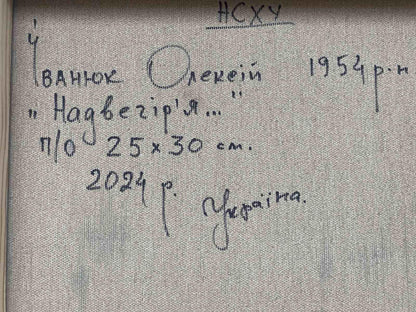 НСХУ
Іванюк Олексій 1954 р.н
„Надвечір'я..."
п/о 25 x 30 см.
2024 р. Україна.